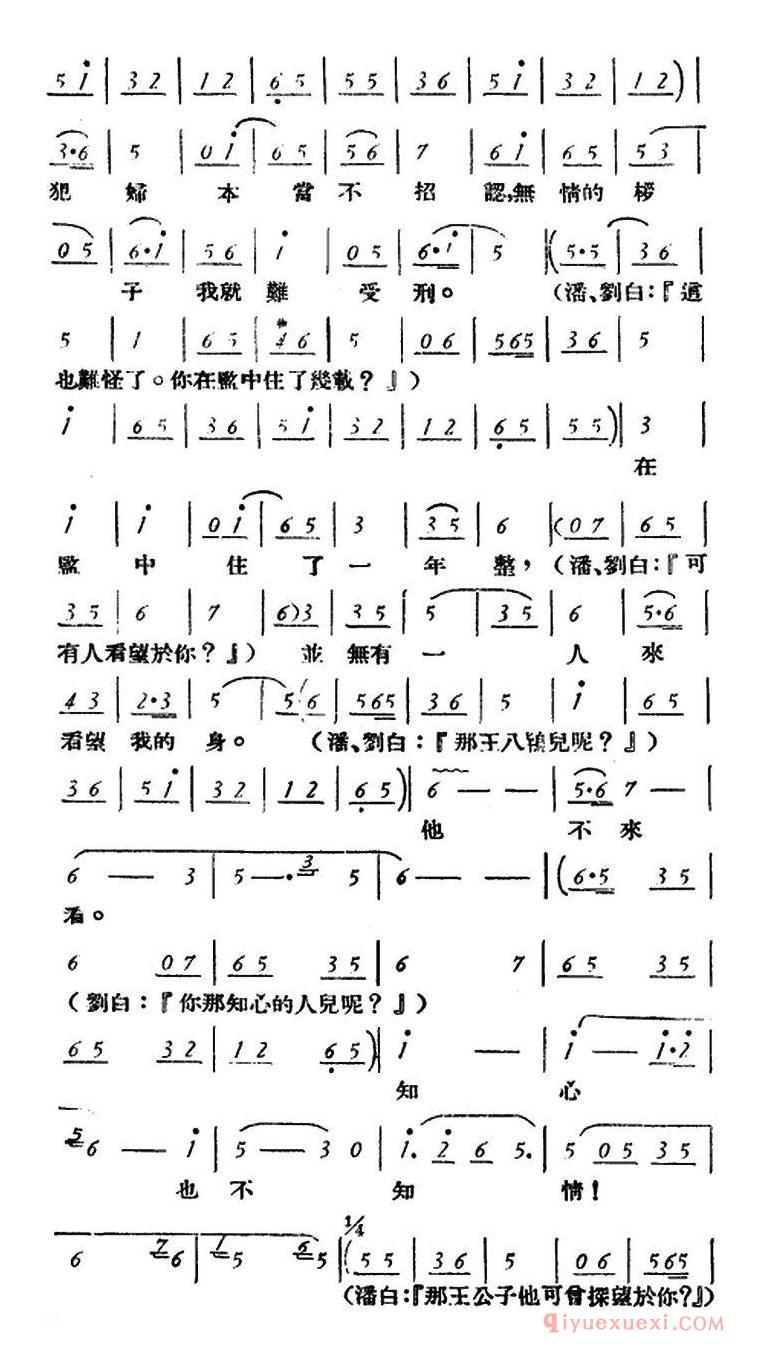 5 i | 3 2 | 1 2 | 6 5 | 5 5 | 3 6 | 5 i | 3 2 | 1 2 ) |
3·6 | 5 | 0 i | 6 5 | 5 6 | 7 | 6 i | 6 5 | 5 3 |
犯 婦 本 當 不 招 認,無 情的 桚
0 5 | 6·i | 5 6 | i | 0 5 | 6·i | 5 ‖( 5·5 | 3 6 |
子 我就 難 受 刑。 (潘、劉白:『這
5 | 1 | 6 5 | 4 6 | 5 | 0 6 | 5 6 5 | 3 6 | 5 |
也難怪了。你在監中住了幾載?』)
i | 6 5 | 3 6 | 5 i | 3 2 | 1 2 | 6 5 | 5 5 )‖ 3 |
在
i | i | 0 i | 6 5 | 3 | 3 5 | 6 |( 0 7 | 6 5 |
監 中 住 了 一 年 整, (潘、劉白:『可
3 5 | 6 | 7 | 6 ) 3 | 3 5 | 5 | 3 5 | 6 | 5·6 |
有人看望於你?』) 並 無有 一 人 來
4 3 | 2·3 | 5 | 5 ( 6 | 5 6 5 | 3 6 | 5 | i | 6 5 |
看望 我的 身。 (潘、劉白:『那王八穎兒呢?』)
3 6 | 5 i | 3 2 | 1 2 | 6 5 )‖ 6 — — | 5·6 7 — |
他 不 來
6 — 3 | 5 —· 3 5 | 6 — — ‖( 6·5 3 5 |
看。
6 0 7 | 6 5 3 5 | 6 7 | 6 5 3 5 |
(劉白:『你那知心的人兒呢?』)
6 5 3 2 | 1 2 6 5 )‖ i — | i — i·2 |
知 心
5 6 — i | 5 — 3 0 | i. 2 6 5. | 5 0 5 3 5 |
也 不 知 情!
6 7 6 | 1 5 6 5 ‖ 1/4 ( 5 5 | 3 6 | 5 | 0 6 | 5 6 5 |
(潘白:『那王公子他可曾探望於你?』)
qiyuexuexi.com